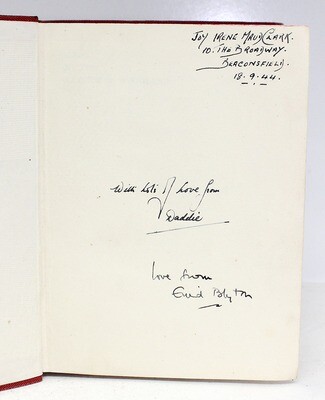 JOY IRENE MAUD CLARK.
10. THE BROADWAY.
BEACONSFIELD.
18-9-44.
With lots of Love from
Daddie
love from
Enid Blyton